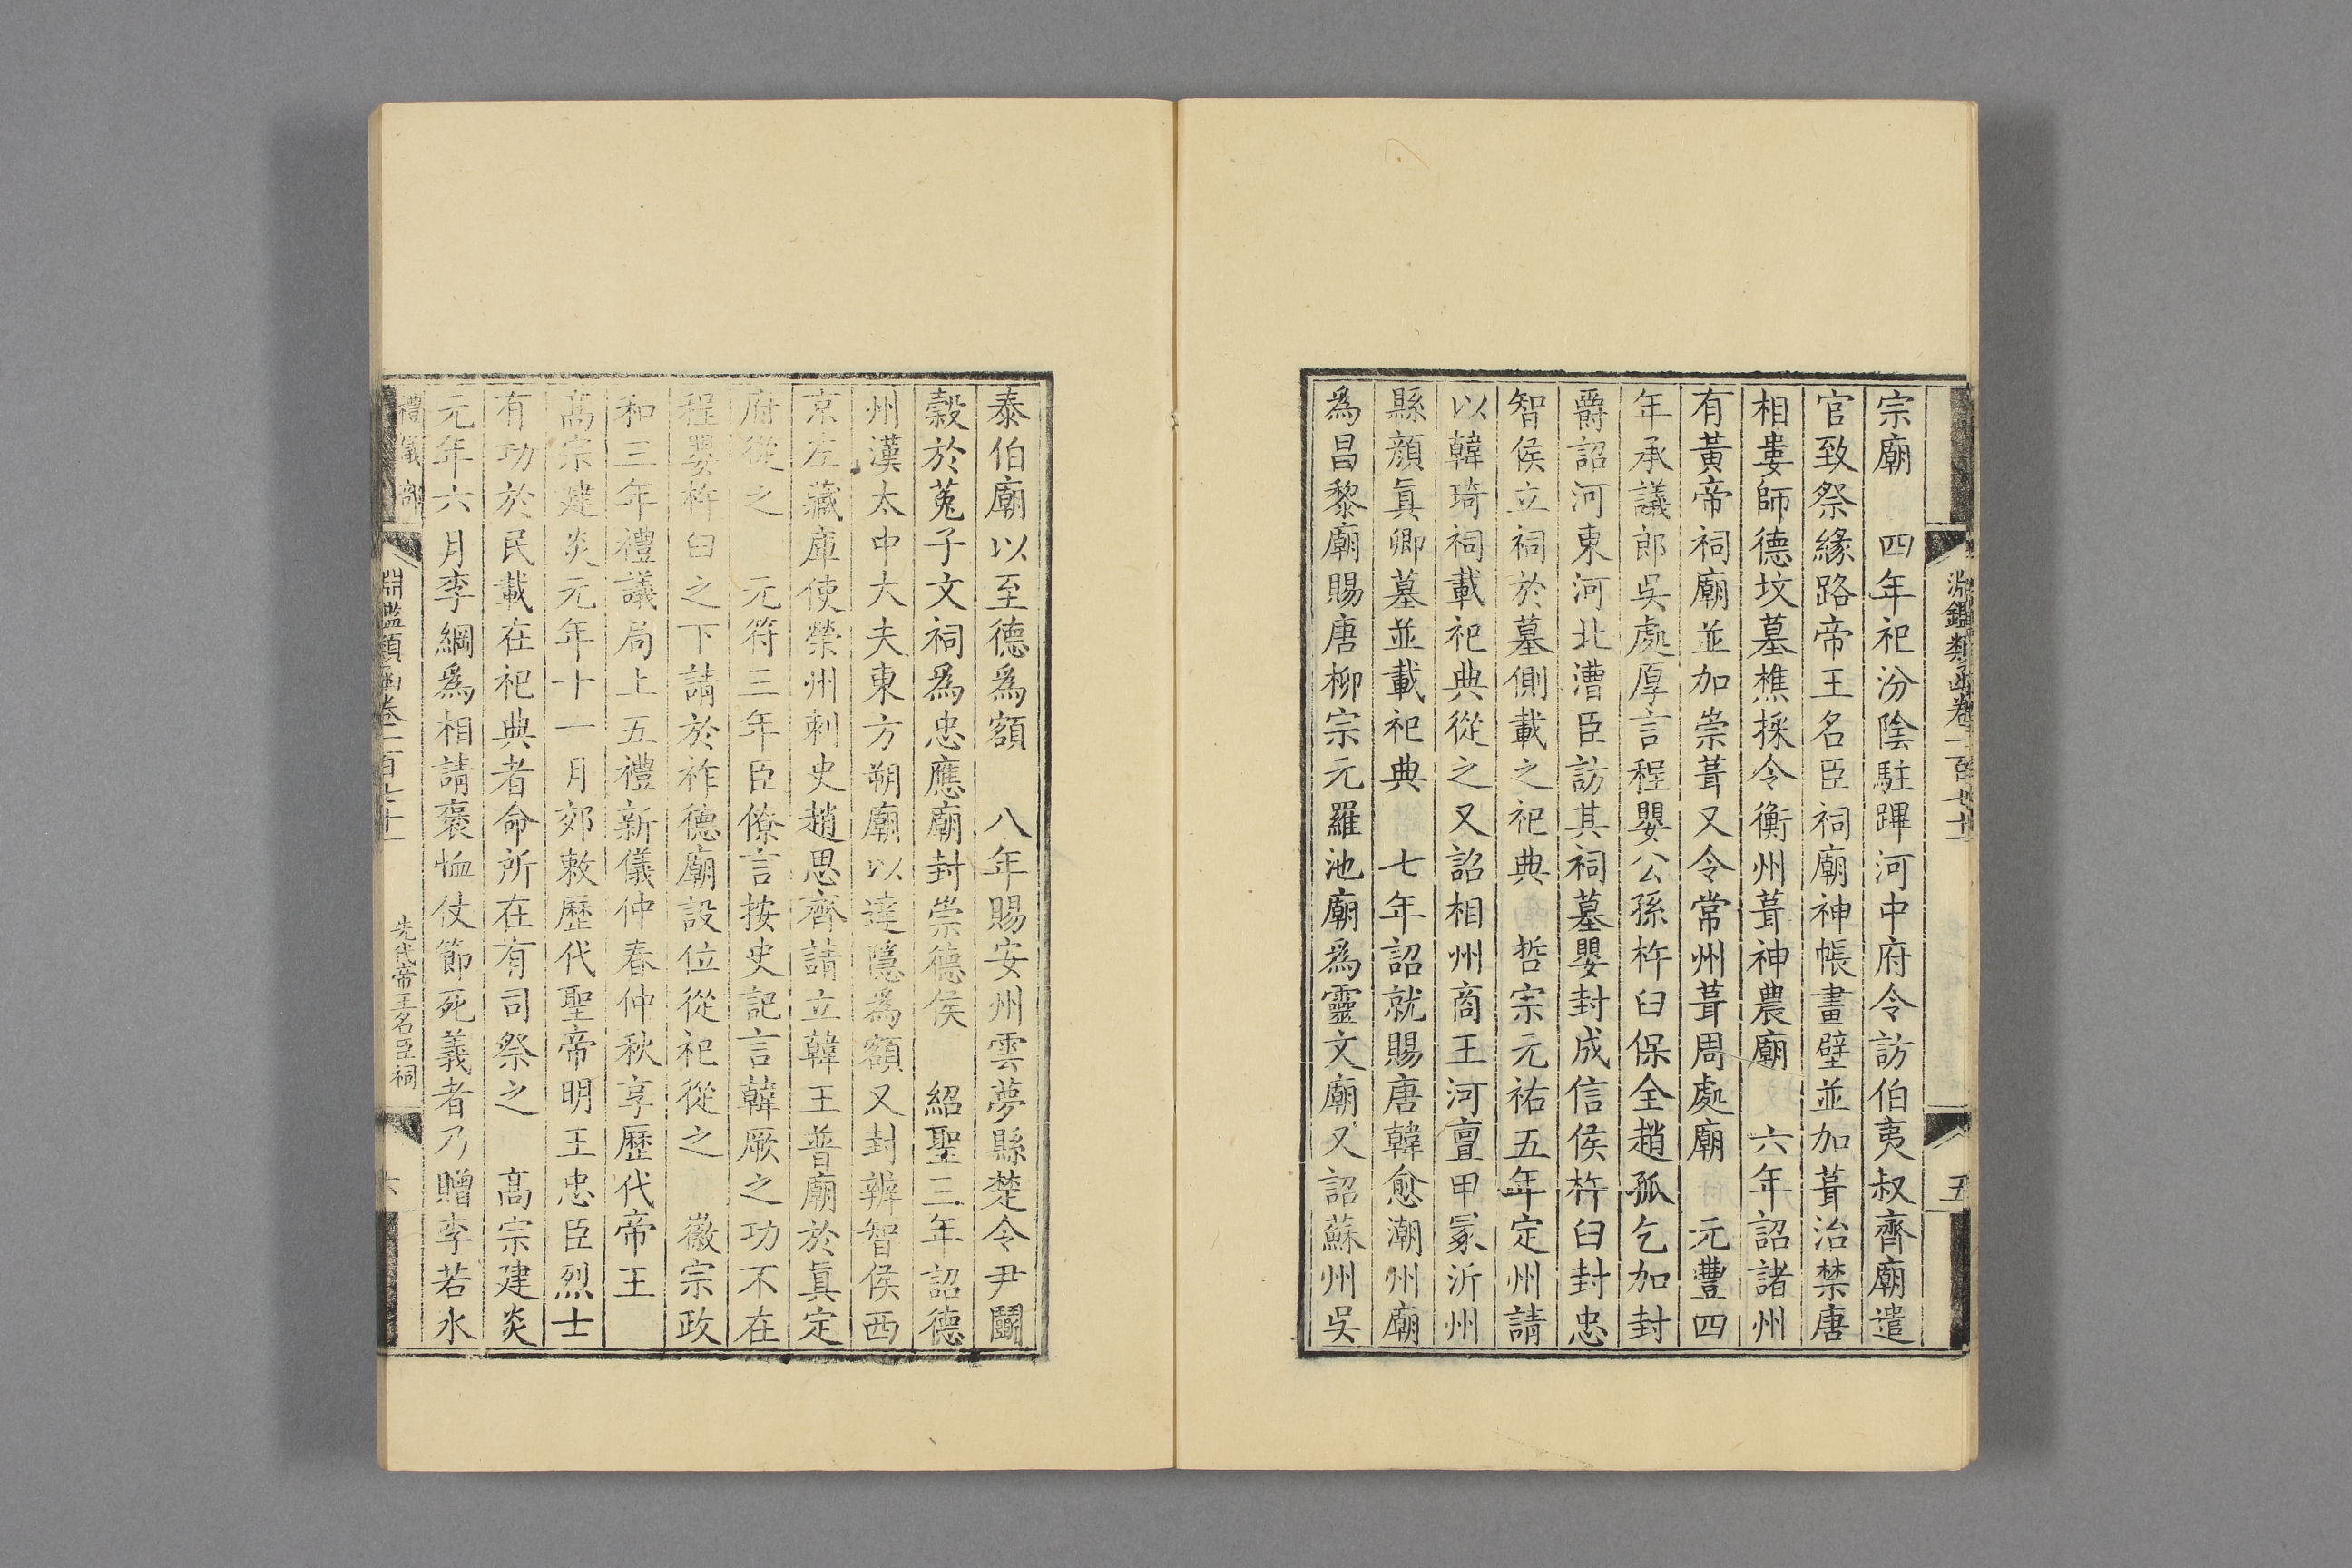 淵鑑類函卷一百七十一
五
宗廟　四年祀汾陰駐蹕河中府令訪伯夷叔齊廟遣
官致祭緣路帝王名臣祠廟神帳畫壁並加葺治禁唐
相婁師德坟墓樵採令衡州葺神農廟　六年詔諸州
有黃帝祠廟並加崇葺又令常州葺周處廟　元豐四
年承議郎吳處厚言程嬰公孫杵臼保全趙孤乞加封
爵詔河東河北漕臣訪其祠墓嬰封成信侯杵臼封忠
智侯立祠於墓側載之祀典　哲宗元祐五年定州請
以韓琦祠載祀典從之又詔相州商王河亶甲冢沂州
縣顏眞卿墓並載祀典　七年詔就賜唐韓愈潮州廟
爲昌黎廟賜唐柳宗元羅池廟爲靈文廟又詔蘇州吳
泰伯廟以至德爲額　八年賜安州雲夢縣楚令尹鬭
穀於菟子文祠爲忠應廟封崇德侯　紹聖三年詔德
州漢太中大夫東方朔廟以達隱爲額又封辨智侯西
京左藏庫使榮州刺史趙思齊請立韓王普廟於眞定
府從之　元符三年臣僚言按史記言韓厥之功不在
程嬰杵臼之下請於祚德廟設位從祀從之　徽宗政
和三年禮議局上五禮新儀仲春仲秋享歷代帝王
高宗建炎元年十一月郊敕歷代聖帝明王忠臣烈士
有功於民載在祀典者命所在有司祭之　高宗建炎
元年六月李綱爲相請褒恤仗節死義者乃贈李若水
禮儀部
淵鑑類函卷一百七十一
先代帝王名臣祠
六